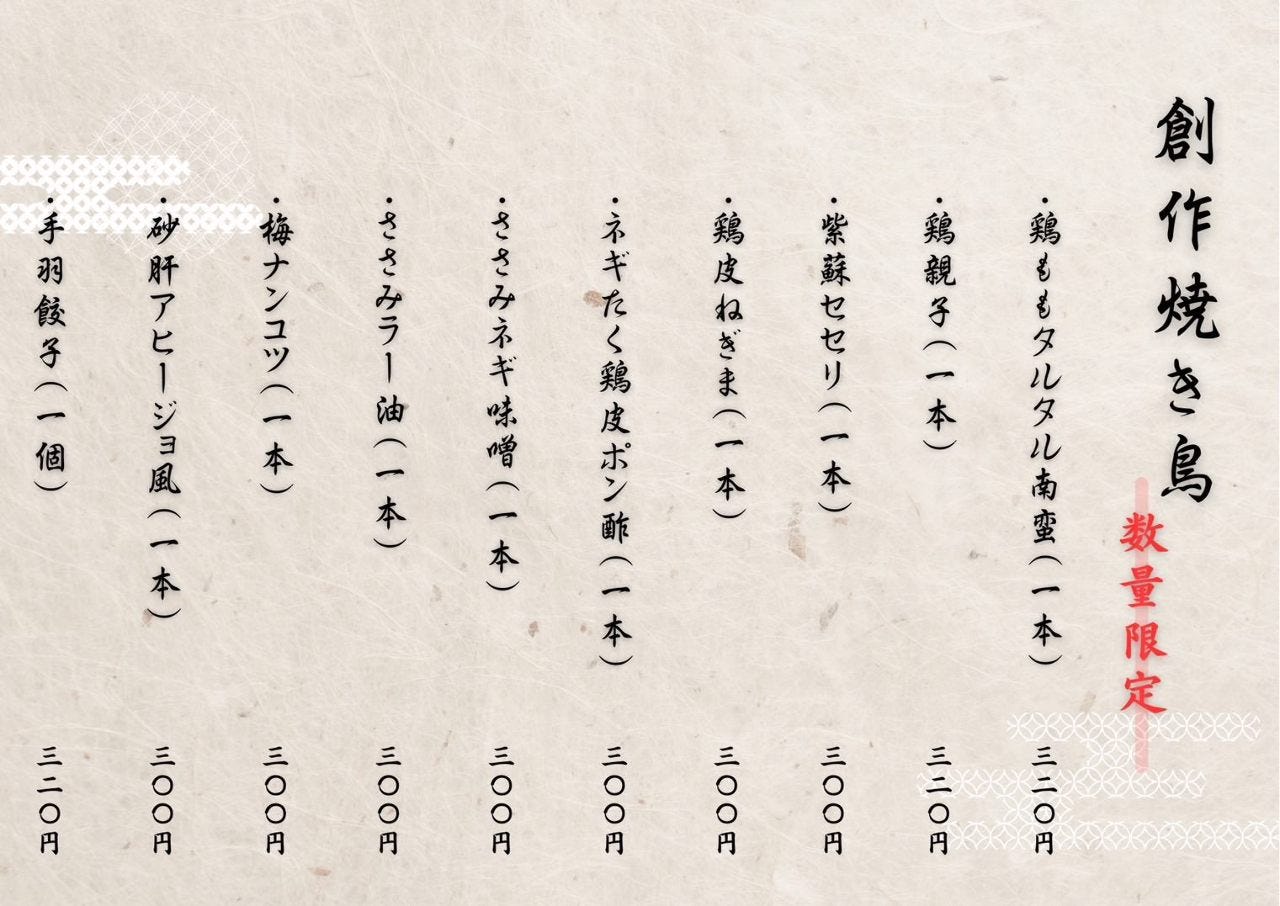 創作焼き鳥
数量限定
・鶏ももタルタル南蛮(一本) 三二〇円
・鶏親子(一本) 三二〇円
・紫蘇セセリ(一本) 三〇〇円
・鶏皮ねぎま(一本) 三〇〇円
・ネギたく鶏皮ポン酢(一本) 三〇〇円
・ささみネギ味噌(一本) 三〇〇円
・ささみラー油(一本) 三〇〇円
・梅ナンコツ(一本) 三〇〇円
・砂肝アヒージョ風(一本) 三〇〇円
・手羽餃子(一個) 三二〇円